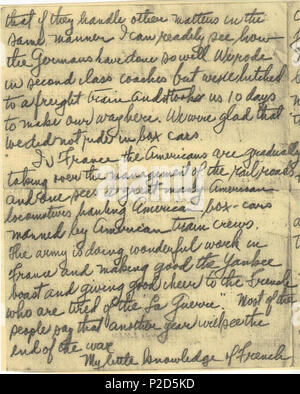 that if they handle other matters in the
same manner I can readely see how
the Germans have done so well. We rode
in second class coaches but were hitched
to a freight train. And it took us 10 days
to make our way here. We were glad that
we did not ride in box cars.
In France the Americans are gradually
taking over the management of the railroads
and one sees a great many American
locomotives hauling America box-cars
manned by American train crews.
The army is doing wonderful work in
France and making good the Yankee
boast and giving good cheer to the French
who are tired of the La Guerre. Most of the
people say that another year will see the
end of the war.
My little knowledge of French
alamy
Image ID: 2PD5KD
www.alamy.com